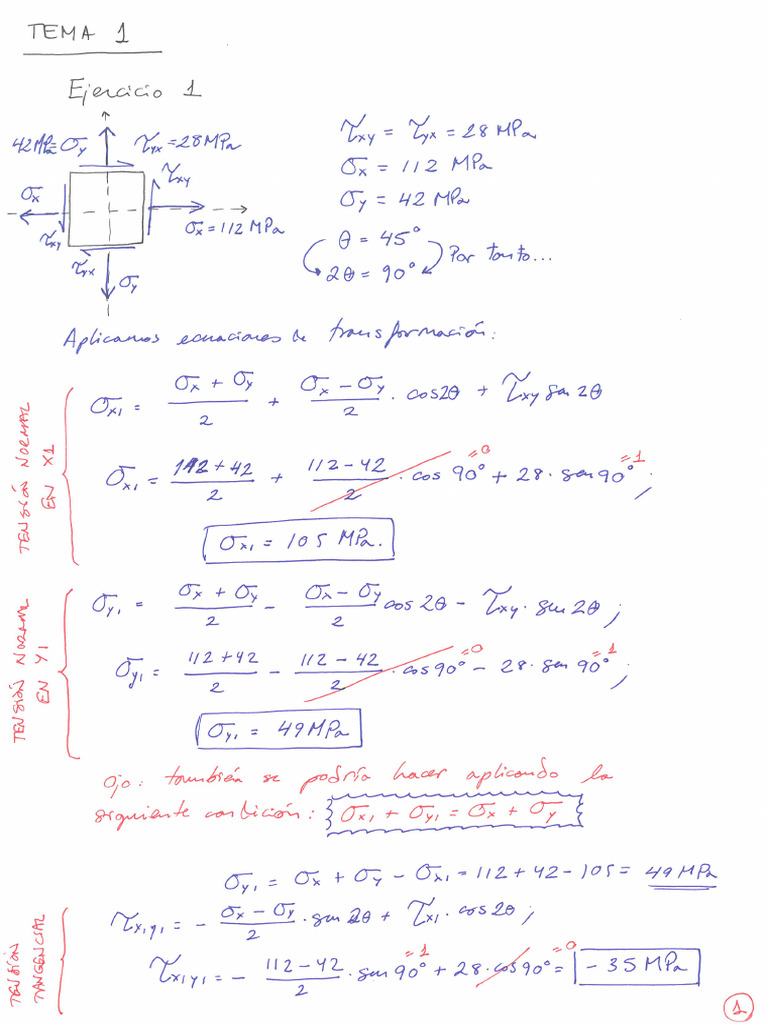 TEMA 1
Ejercicio 1
42MPa=σy τyx = 28MPa
τxy
σx
σx = 112 MPa
τxy
τyx
σy
τxy = τyx = 28 MPa
σx = 112 MPa
σy = 42 MPa
θ = 45°
2θ = 90° Por tanto...
Aplicamos ecuaciones de transformación:
TENSIÓN NORMAL EN X1
σx1 = (σx + σy)/2 + (σx − σy)/2 · cos2θ + τxy sen 2θ
σx1 = (112+42)/2 + (112−42)/2 · cos 90° =0 + 28 · sen 90° =1 ;
σx1 = 105 MPa.
TENSIÓN NORMAL EN Y1
σy1 = (σx + σy)/2 − (σx − σy)/2 cos 2θ − τxy · sen 2θ ;
σy1 = (112+42)/2 − (112−42)/2 · cos 90° =0 − 28 · sen 90° =1 ;
σy1 = 49MPa
Ojo: también se podría hacer aplicando la
siguiente condición: σx1 + σy1 = σx + σy
σy1 = σx + σy − σx1 = 112 + 42 − 105 = 49 MPa
TENSIÓN TANGENCIAL
τx1y1 = − (σx − σy)/2 · sen 2θ + τx1 · cos 2θ ;
τx1y1 = − (112−42)/2 · sen 90° =1 + 28 · cos 90° =0 = −35 MPa
1